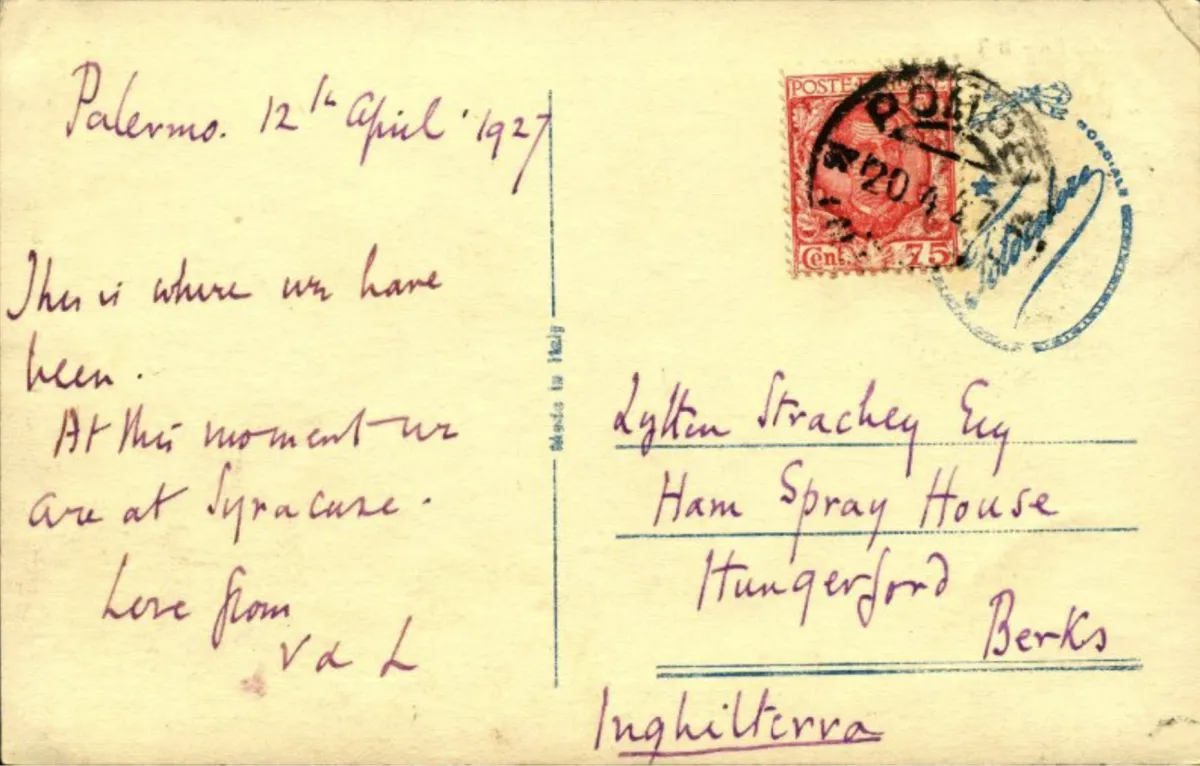 Palermo. 12th April 1927
This is where we have
been.
At this moment we
are at Syracuse.
Love from
V & L
Made in Italy
POSTE
Cent. 75
POMPEI
20.4.27
Lytton Strachey Esq
Ham Spray House
Hungerford
Berks
Inghilterra